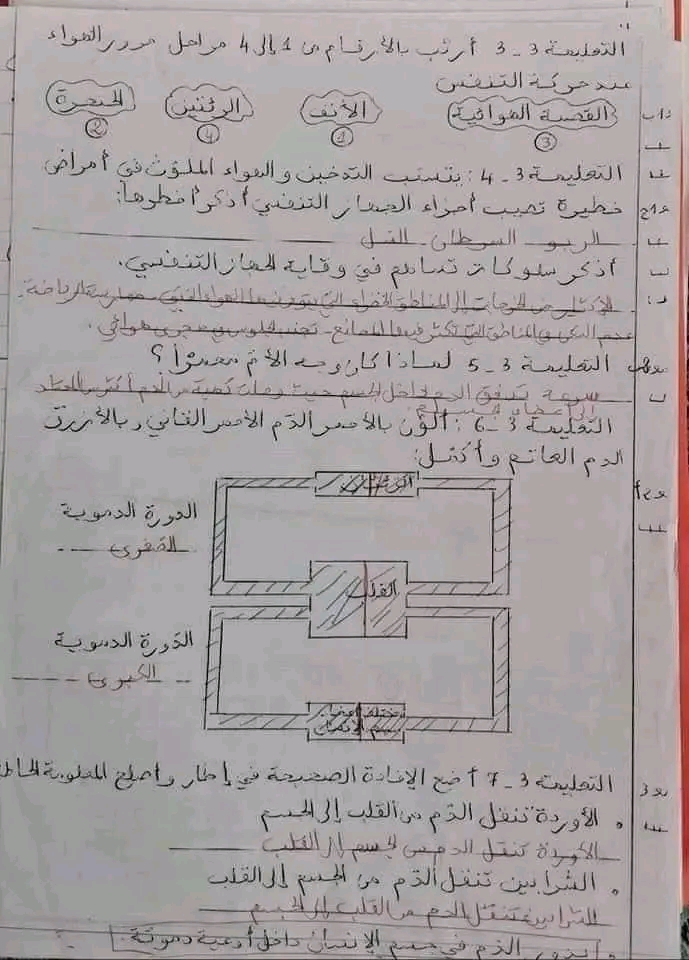 التعليمة 3 - 3 أرتب بالأرقام من 1 إلى 4 مراحل مرور الهواء
عند حركة التنفس
القصبة الهوائية الأنف الرئتين الحنجرة
3 1 4 2
التعليمة 3 - 4 : يتسبب التدخين و الهواء الملوث في أمراض
خطيرة تصيب أجزاء الجهاز التنفسي أذكر أخطرها:
الربو - السرطان - السل
أذكر سلوكات تساهم في وقاية الجهاز التنفسي.
الإكثار من الخرجات إلى المناطق الخضراء التي يتوفر فيها الهواء النقي - ممارسة الرياضة.
عدم السكن في المناطق التي تكثر فيها المصانع - تجنب الجلوس في مجرى هوائي.
التعليمة 3 - 5 لماذا كان وجه الأم محمرا ؟
سرعة تدفق الدم داخل الجسم حيث وصلت كمية من الدم أكثر من المعتاد
إلى أعضاء الجسم
التعليمة 3 - 6 : ألون بالأحمر الدم الأحمر القاني و بالأزرق
الدم القاتم و أكمل:
الرئتان
الدورة الدموية
الصغرى
القلب
الدورة الدموية
الكبرى
مختلف أعضاء
جسم الإنسان
التعليمة 3 - 7 أضع الإفادة الصحيحة في إطار و أصلح المعلومة الخاط
• الأوردة تنقل الدم من القلب إلى الجسم
الأوردة تنقل الدم من الجسم إلى القلب
• الشرايين تنقل الدم من الجسم إلى القلب
الشرايين تنقل الدم من القلب إلى الجسم
• يدور الدم في جسم الإنسان داخل أوعية دموية